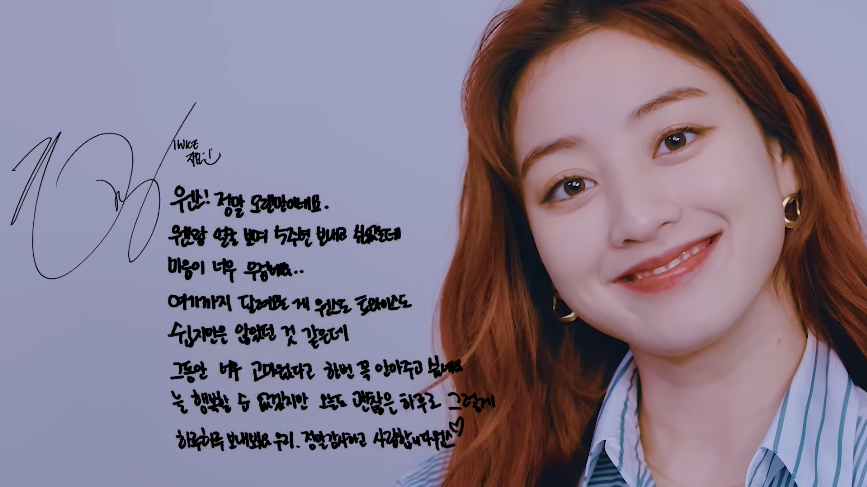 TWICE
지효:)
원스! 정말 오랜만이네요.
원스랑 얼굴 보며 5주년 보내고 싶었는데
마음이 너무 무겁네요..
여기까지 달려오는 게 원스도 트와이스도
쉽지만은 않았던 것 같은데
그동안 너무 고마웠다고 한번 꼭 안아주고 싶네요
늘 행복할 수 없겠지만 오늘도 괜찮은 하루로 그렇게
하루하루 보내봐요 우리. 정말 감사하고 사랑합니다 원스♡